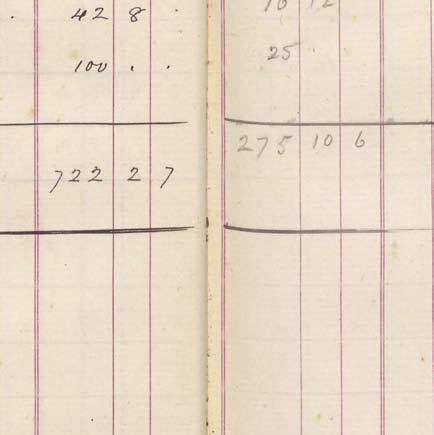 . 42 8 .
100 . .
722 2 7
25
275 10 6